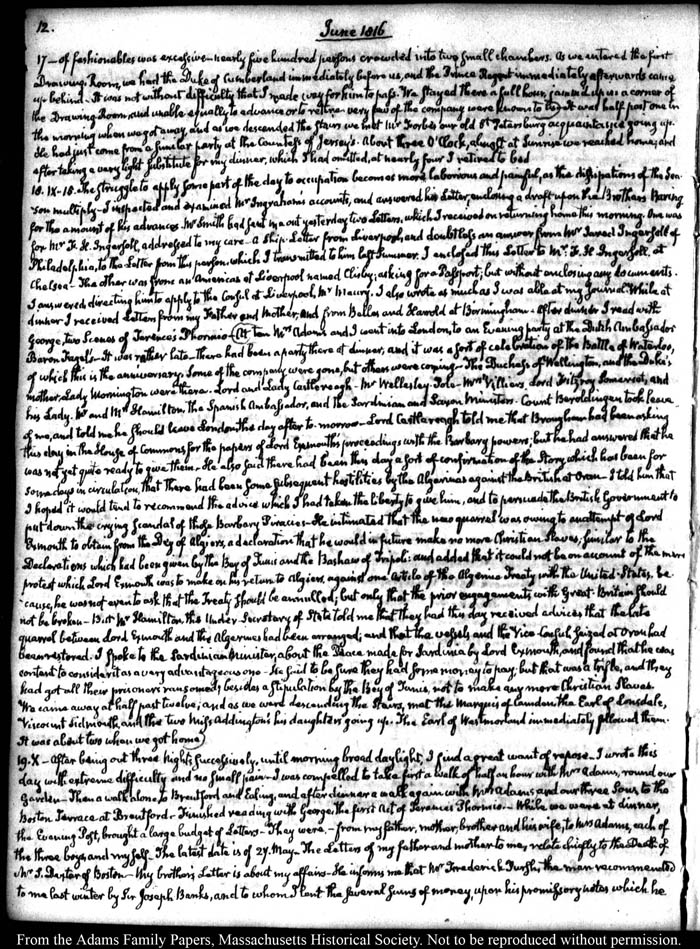 12.
June 1816
17 — of fashionables was excessive — nearly five hundred persons crowded into two small chambers. As we entered the first
Drawing Room, we had the Duke of Cumberland immediately before us, and the Prince Regent immediately afterwards came
up behind. It was not without difficulty that I made way for him to pass. We stayed there a full hour, jammed up in a corner of
the Drawing Room, and unable equally to advance or to retire. very few of the company were known to us. It was half past one in
the morning when we got away, and as we descended the Stairs we met Mr Forbes our old St Petersburg acquaintance going up.
He had just come from a similar party at the Countess of Jersey's. About three O'Clock, almost at Sunrise we reached home; and
after taking a very light substitute for my dinner, which I had omitted, at nearly four I retired to bed
18. IX-18. The struggle to apply some part of the day to occupation becomes more laborious and painful, as the dissipations of the Sea-
son multiply. I inspected and examined Mr Ingraham's accounts, and answered his Letter, enclosing a draft upon the Brothers Baring
for the amount of his advances. Mr Smith had sent me out yesterday two Letters, which I received on returning home this morning. One was
for Mr F. H. Ingersoll, addressed to my care. A Ship-Letter from Liverpool, and doubtless an answer from Mr Jared Ingersoll of
Philadelphia, to the Letter from this person, which I transmitted to him last Summer. I enclosed this Letter to Mr F. H. Ingersoll, at
Chelsea. The other was from an American at Liverpool named Clisby; asking for a Passport; but without enclosing any documents.
I answered directing him to apply to the Consul at Liverpool, Mr Maury. I also wrote as much as I was able at my Journal. While at
dinner I received Letters from my Father and Mother, and from Belles and Harrold at Birmingham. After dinner I read with
George, two Scenes of Terence's Phormio. At ten Mrs Adams and I went into London, to an Evening party at the Dutch Ambassador
Baron Fagel's. It was rather late. There had been a party there at dinner, and it was a sort of celebration of the Battle of Waterloo,
of which this is the anniversary. Some of the company were gone, but others were coming. The Duchess of Wellington, and the Duke's
mother Lady Mornington were there. Lord and Lady Castlereagh. Mr Wellesley-Pole. Mrs Villiers, Lord Fitzroy Somerset, and
his Lady. Mr and Mrs Hamilton, the Spanish Ambassador, and the Sardinian and Saxon Ministers. Count Beroldingen took leave
of me, and told me he should leave London the day after to-morrow. Lord Castlereagh told me that Brougham had been asking
this day in the House of Commons for the papers of Lord Exmouth's proceedings with the Barbary powers; but he had answered that he
was not yet quite ready to give them. He also said there had been this day a sort of confirmation of the Story, which has been for
some days in circulation, that there had been some subsequent hostilities by the Algerines against the British at Oran. I told him that
I hoped it would tend to recommend the advice which I had taken the liberty to give him, and to persuade the British Government to
put down the crying Scandal of those Barbary Piracies. He intimated that the new quarrel was owing to an attempt of Lord
Exmouth to obtain from the Dey of Algiers, a declaration that he would in future make no more Christian Slaves; similar to the
Declarations which had been given by the Bey of Tunis and the Bashaw of Tripoli: and added that it could not be on account of the mere
protest which Lord Exmouth was to make on his return to Algiers, against one Article of the Algerine Treaty with the United States, be-
cause, he was not even to ask that the Treaty should be annulled, but only that the prior engagements with Great-Britain should
not be broken. But Mr Hamilton the Under-Secretary of State told me that they had this day received advices that the late
quarrel between Lord Exmouth and the Algerines had been arranged; and that the vessels and the Vice-Consul seized at Oran had
been restored. I spoke to the Sardinian Minister, about the Peace made for Sardinia by Lord Exmouth, and found that he was
content to consider it as a very advantageous one. He said to be sure they had some money to pay, but that was a trifle, and they
had got all their prisoners ransomed; besides a Stipulation by the Bey of Tunis, not to make any more Christian Slaves.
We came away at half past twelve; and as we were descending the Stairs, met the Marquis of Camden, the Earl of Lonsdale,
Viscount Sidmouth, and the two Miss Addington's his daughters going up. The Earl of Westmorland immediately followed them.
It was about two when we got home
19. X — After being out three Nights successively, until morning broad daylight, I find a great want of repose. I wrote this
day with extreme difficulty and no small pain. I was compelled to take first a walk of half an hour with Mrs Adams, round our
Garden. Then a walk alone, to Brentford and Ealing, and after dinner a walk again with Mrs Adams and our three Sons, to the
Boston Terrace at Brentford. Finished reading with George the first Act of Terence's Phormio. While we were at dinner,
the Evening Post, brought a large budget of Letters. They were, — from my father, mother, brother and his wife, to Mrs Adams, each of
the three boys and myself. The latest date is of 27. May. The Letters of my father and mother to me, relate chiefly to the Death of
Mr S. Dexter of Boston. My brother's Letter is about my affairs. He informs me that Mr Frederick Pursh, the man recommended
to me last winter by Sir Joseph Banks, and to whom I lent the several sums of money, upon his promissory notes which he
From the Adams Family Papers, Massachusetts Historical Society. Not to be reproduced without permission.